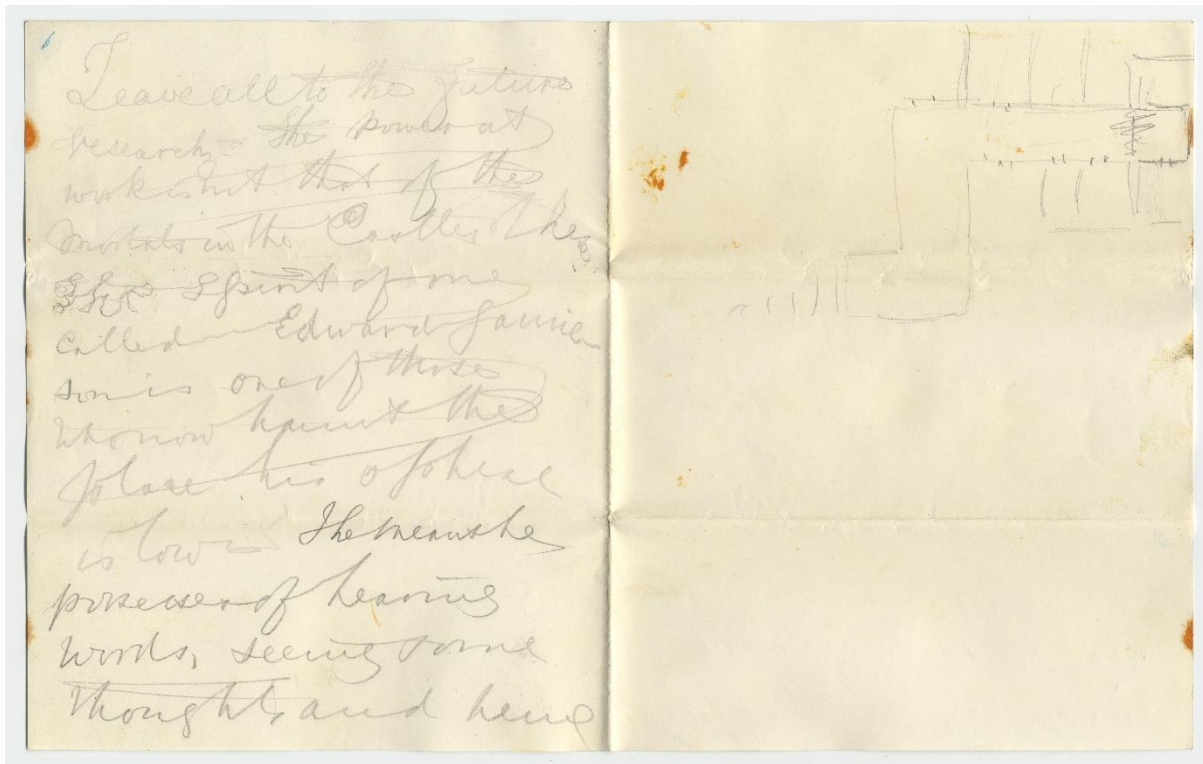 Leave all to the future
research. The power at
work is not that of the
mortals in the Castle. The
Spirit of one
called Edward Jamie
son is one of those
who now haunt the
place his sphere
is low The means he
possesses of hearing
words, seeing some
thoughts and being